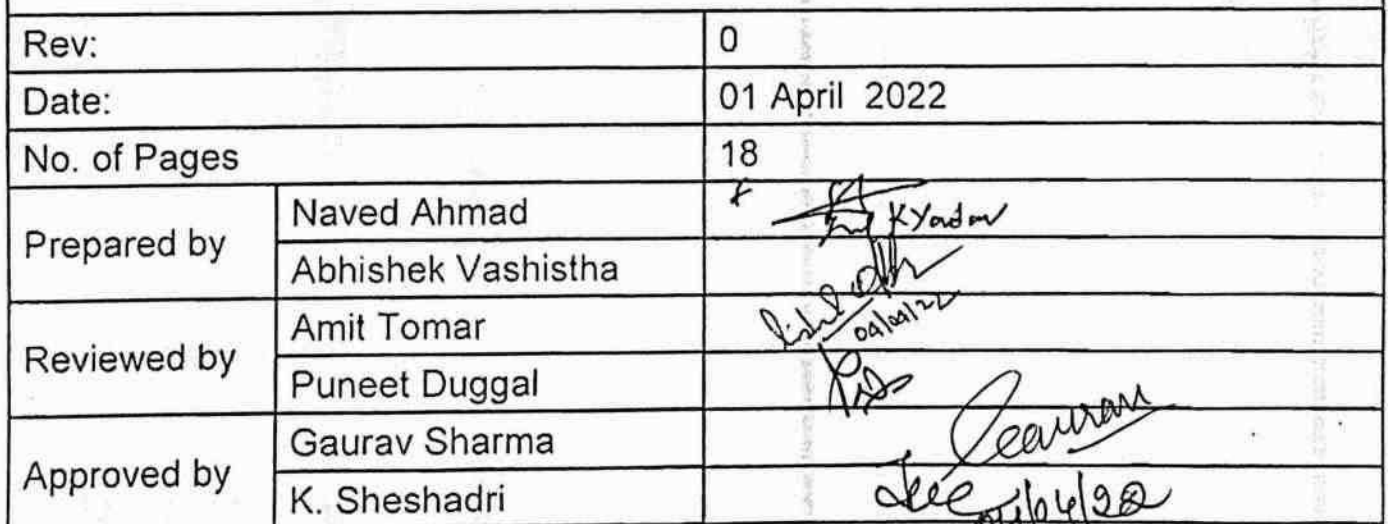 Rev: 0
Date: 01 April 2022
No. of Pages 18
Prepared by
Naved Ahmad
KYadav
Abhishek Vashistha
Reviewed by
Amit Tomar
04/04/22
Puneet Duggal
Approved by
Gaurav Sharma
Gaurav
K. Sheshadri